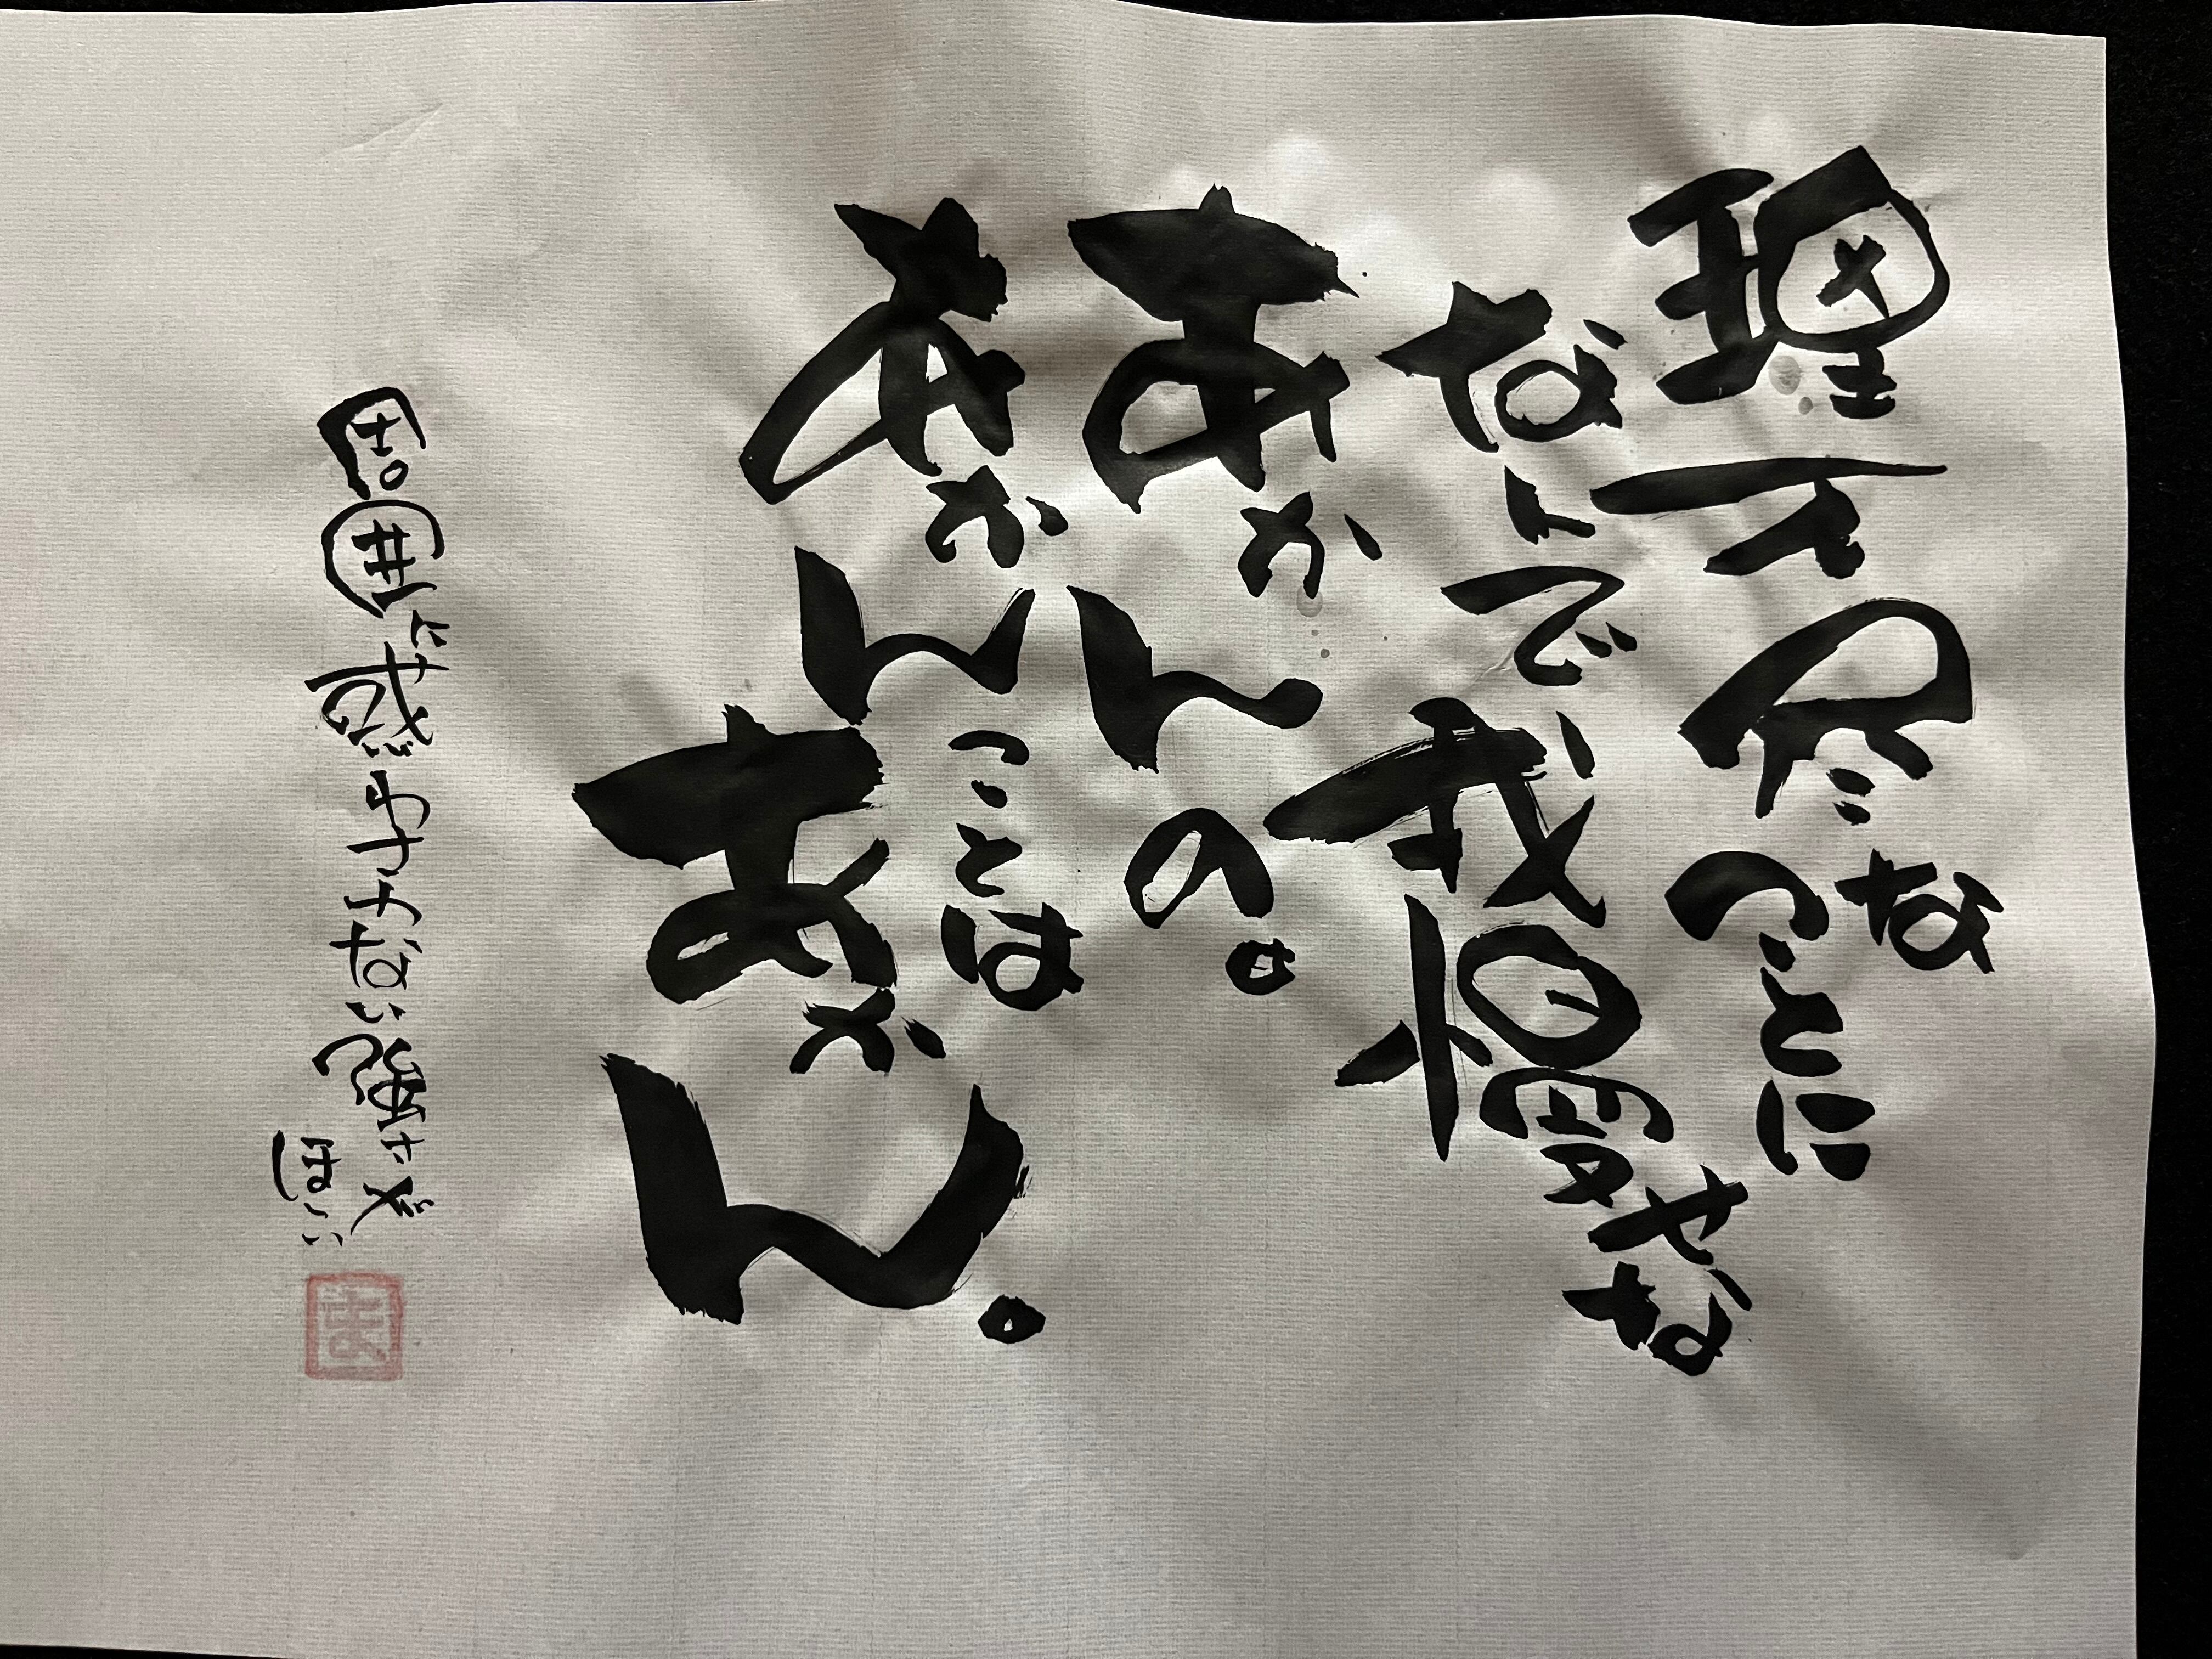 理不尽なことに
なんで我慢せな
あかんの。
あかんことは
あかん。
周囲に惑わされない強さが
ほしい